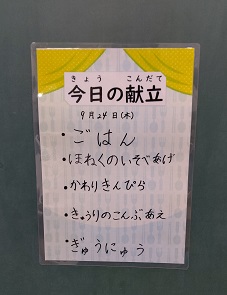 きょう こんだて
今日の献立
9月24日(木)
・ごはん
・ほねくのいそべあげ
・かわりきんぴら
・きゅうりのこんぶあえ
・ぎゅうにゅう